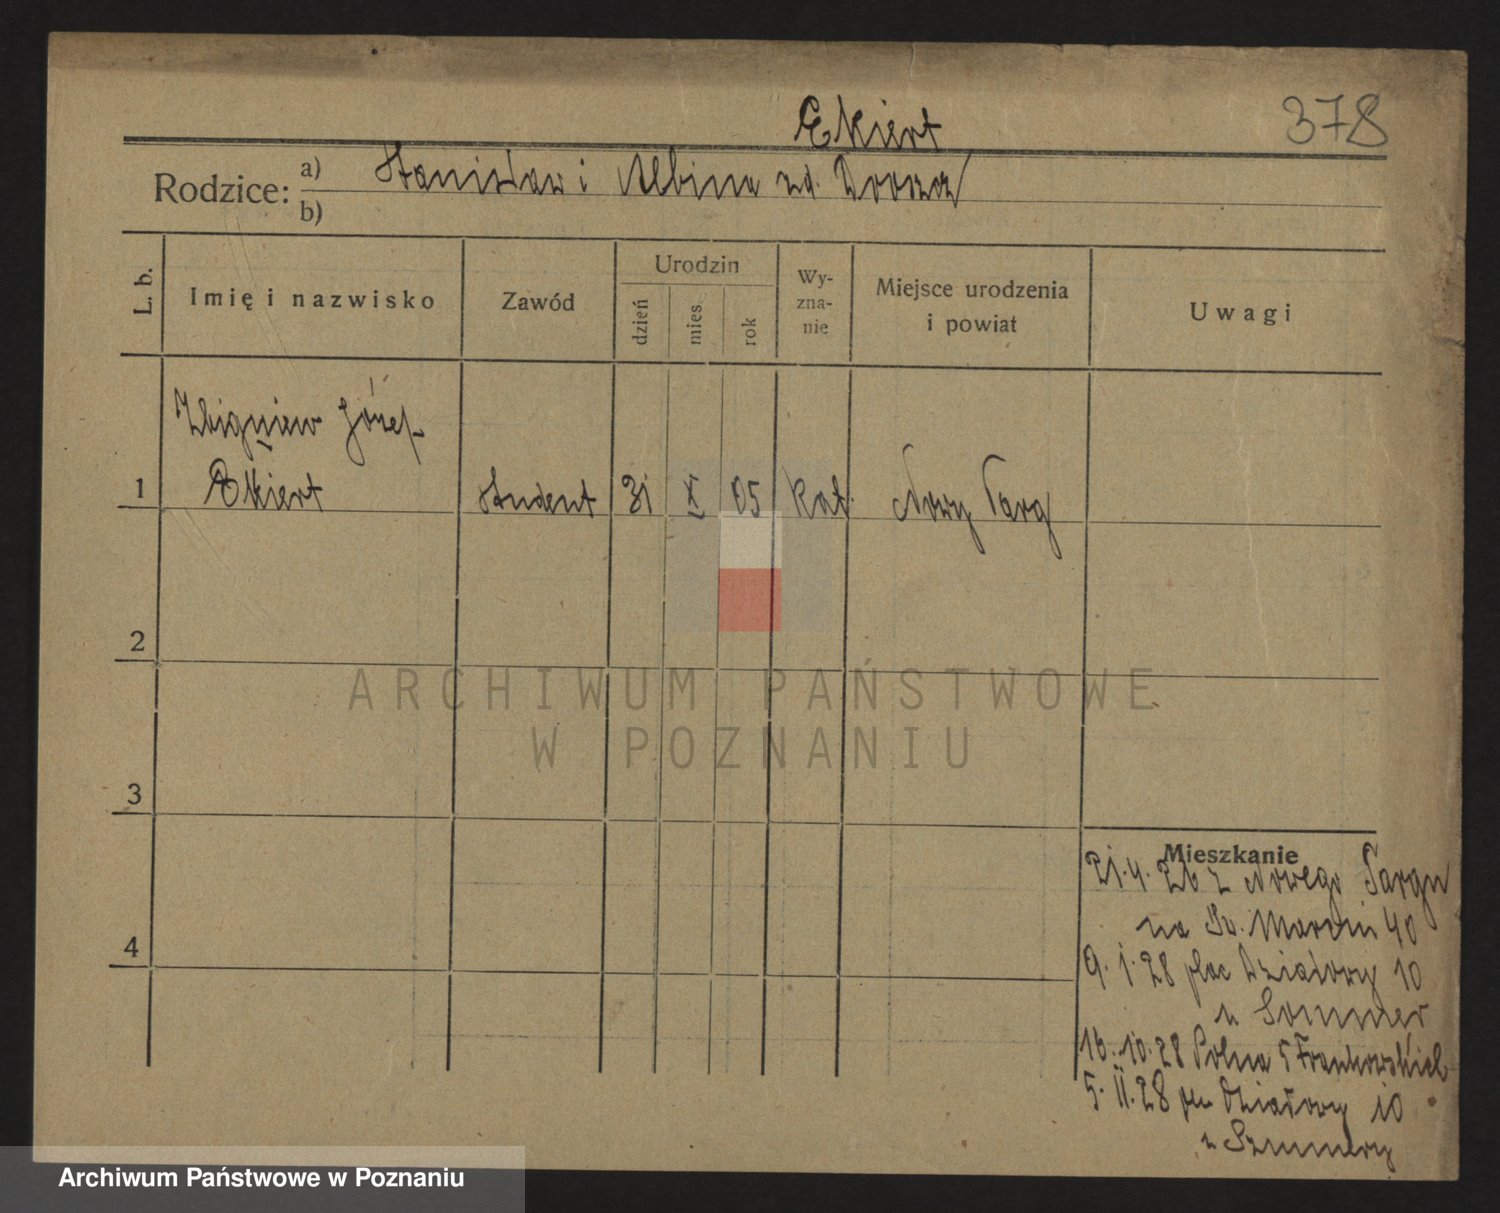 378
Ekiert
Rodzice: a) Stanisław i Albina zd.
b)
L. b.
Imię i nazwisko
Zawód
Urodzin
dzień
mies.
rok
Wy-
zna-
nie
Miejsce urodzenia
i powiat
Uwagi
Zbigniew Józef
1 Ekiert student 31 X 05 kat. Nowy Targ
2
3
4
Mieszkanie
21.4.26 z Nowego Targu
na Św. Marcin 40
9.1.28 plac Działowy 10
u Sommer
16.10.28 Polna 5 Frankowskich
5.II.28 pl. Działowy 10
u
ARCHIWUM PAŃSTWOWE
W POZNANIU
Archiwum Państwowe w Poznaniu